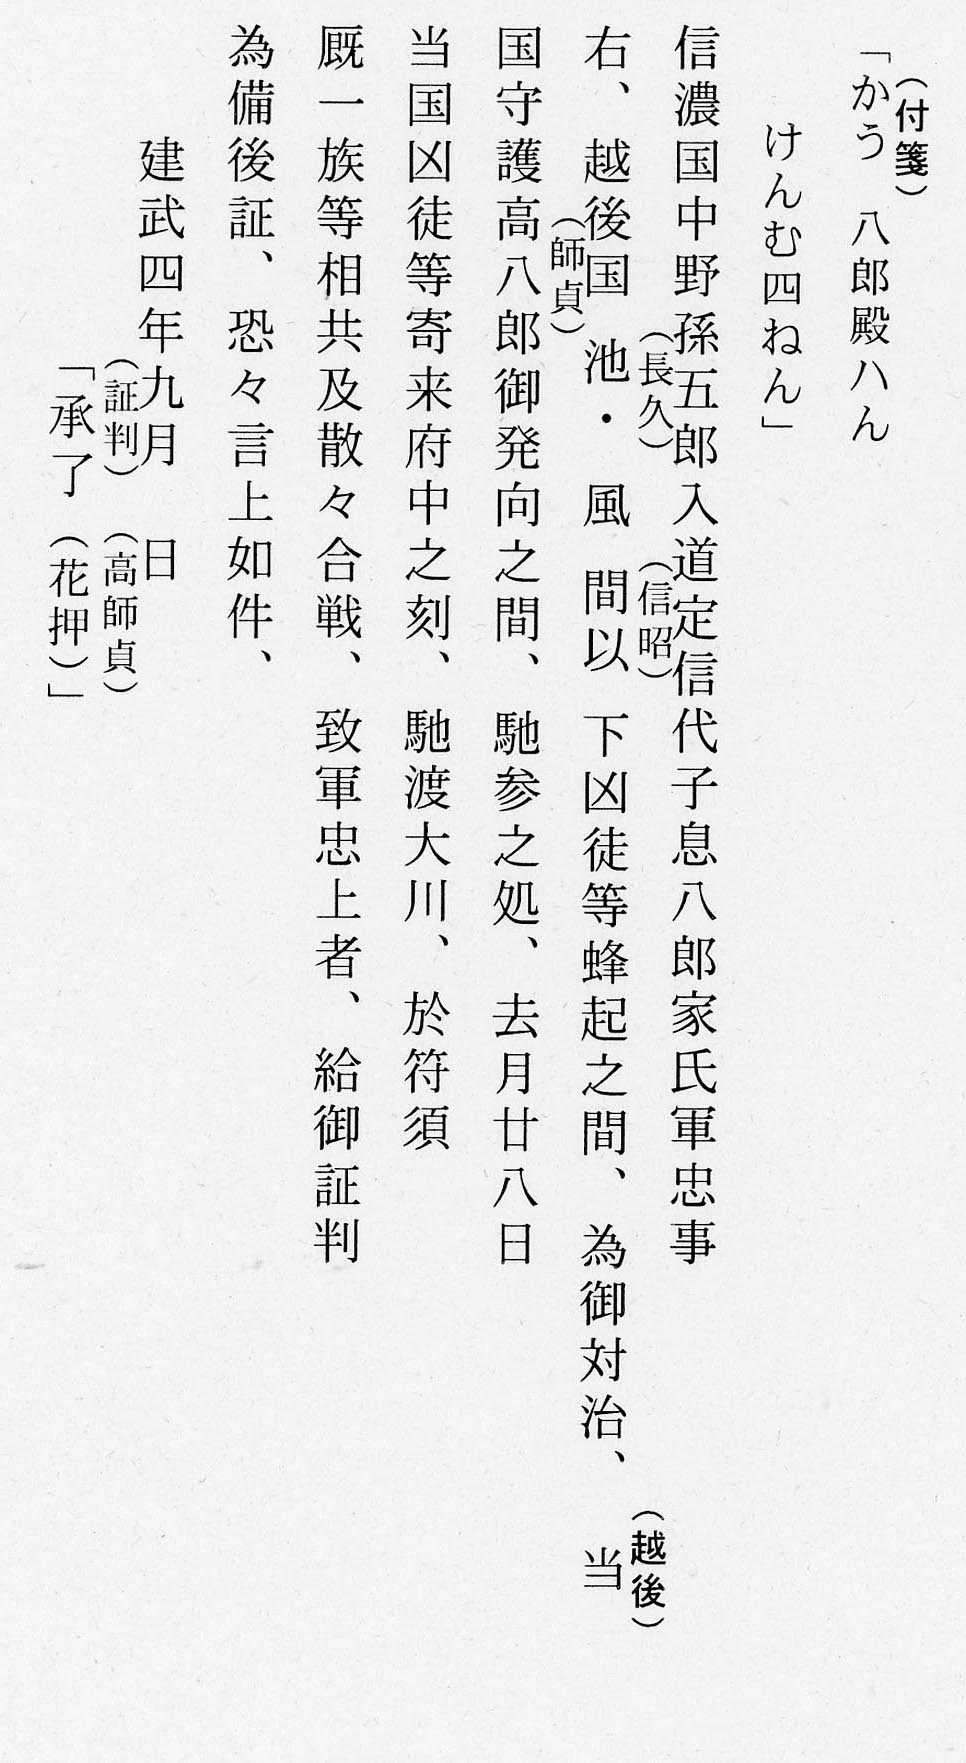 （付箋）
「かう　八郎殿ハん
けんむ四ねん」
信濃国中野孫五郎入道定信代子息八郎家氏軍忠事
（長久）　（信昭）　（越後）
右、越後国池・風間以下凶徒等蜂起之間、為御対治、当
（師貞）
国守護高八郎御発向之間、馳参之処、去月廿八日
当国凶徒等寄来府中之刻、馳渡大川、於符須
厩一族等相共及散々合戦、致軍忠上者、給御証判
為備後証、恐々言上如件、
建武四年九月　日
（証判）　（高師貞）
「承了（花押）」